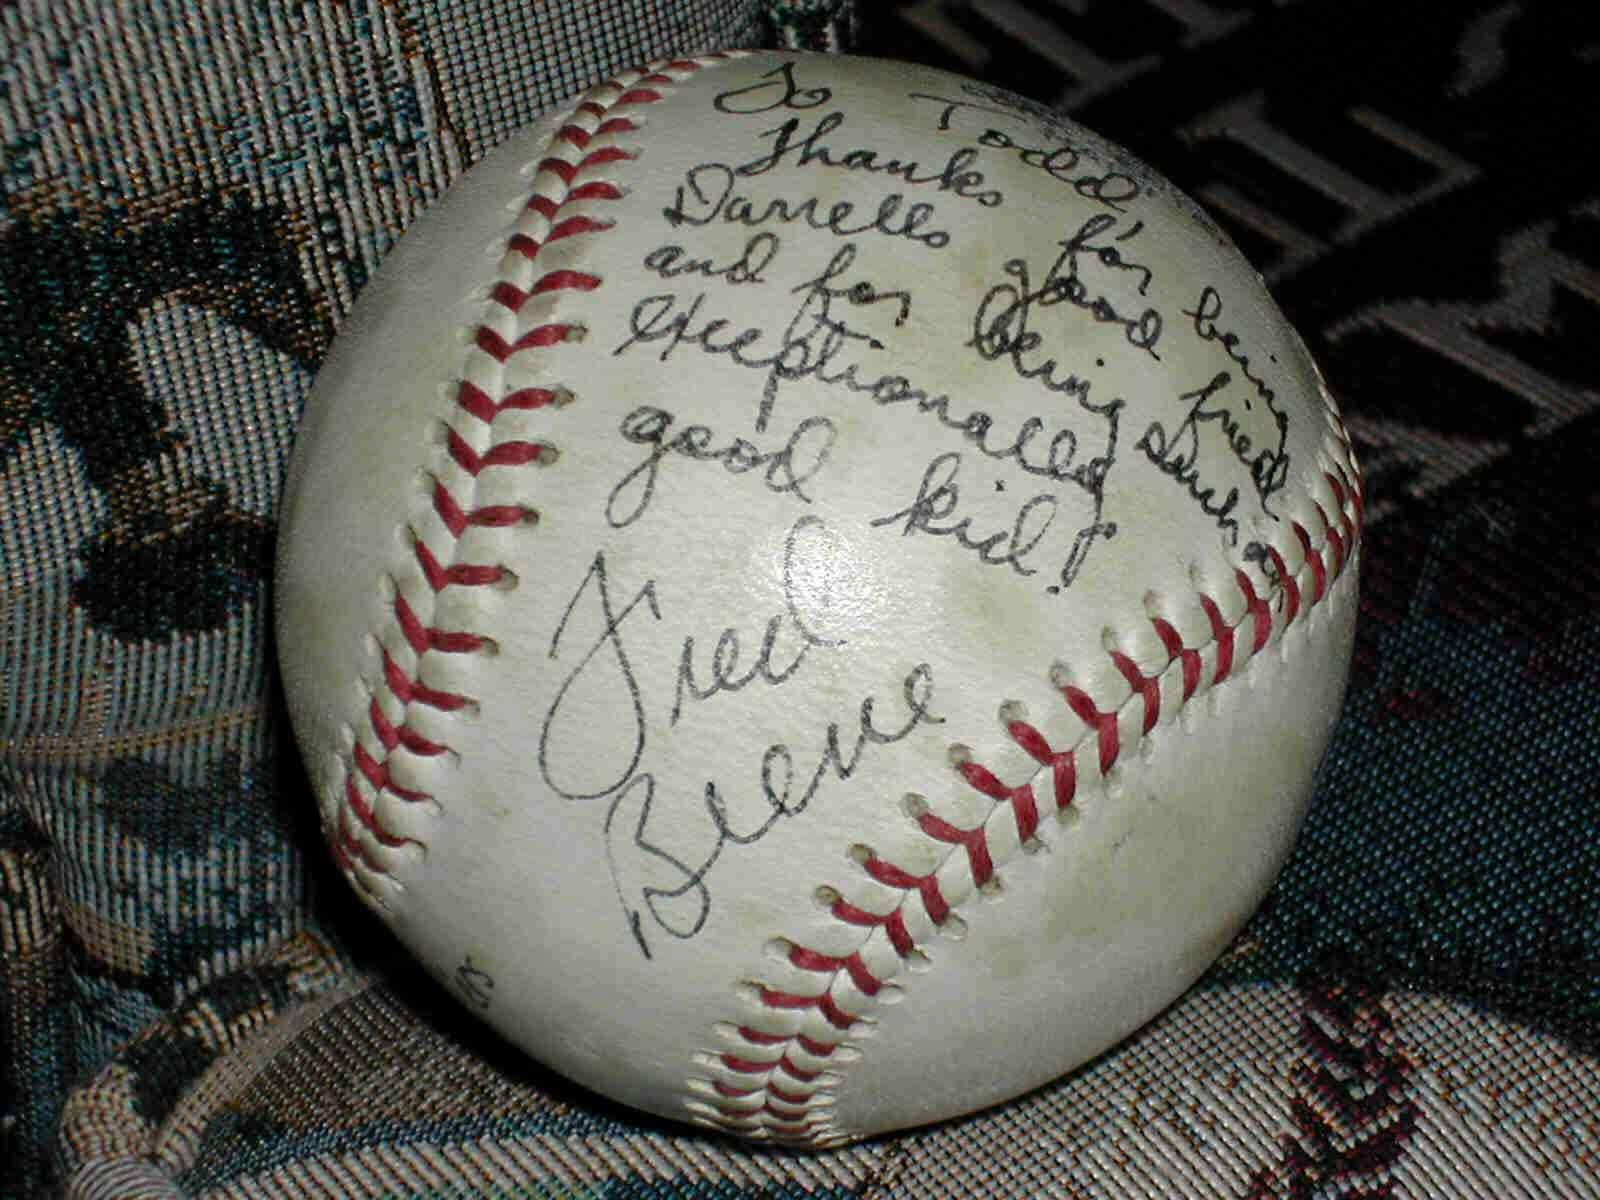 To Todd
Thanks for being
Darrells good fried
and for being such a
exceptionally
good kid!
Fred
Beene